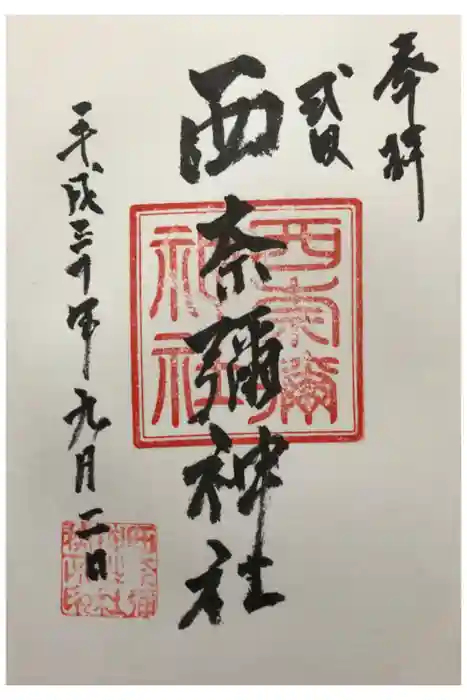 奉拝
式内
西奈彌神社
西奈彌神社
平成三十年九月二日